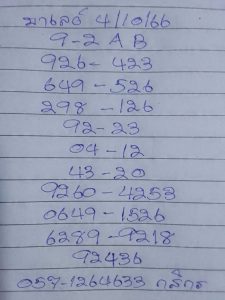 มาเลย์ 4/10/66
9-2 A B
926-423
649-526
298-126
92-23
04-12
43-20
9260-4253
0649-1526
6289-9218
92436
057-1264633